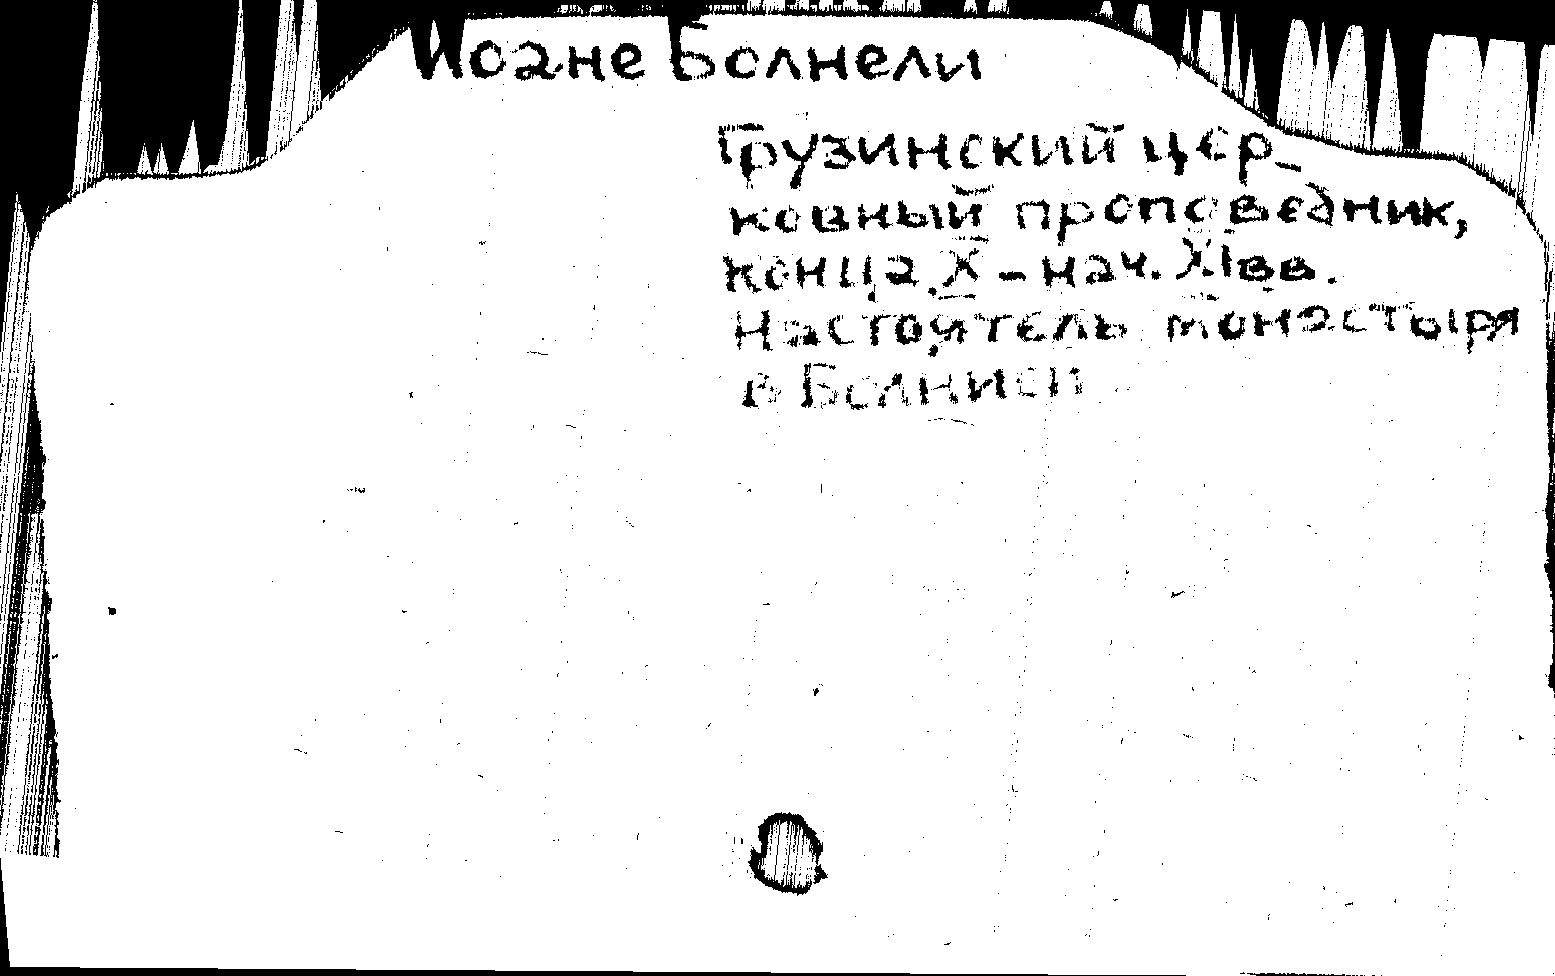 Иоане Болнели
Грузинский цер-
ковный проповедник,
конца X – нач. XI вв.
Настоятель монастыря
в Болниси